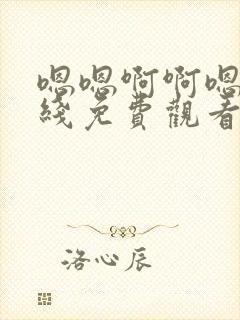 嗯嗯啊啊嗯
綫免費觀看
洛心辰